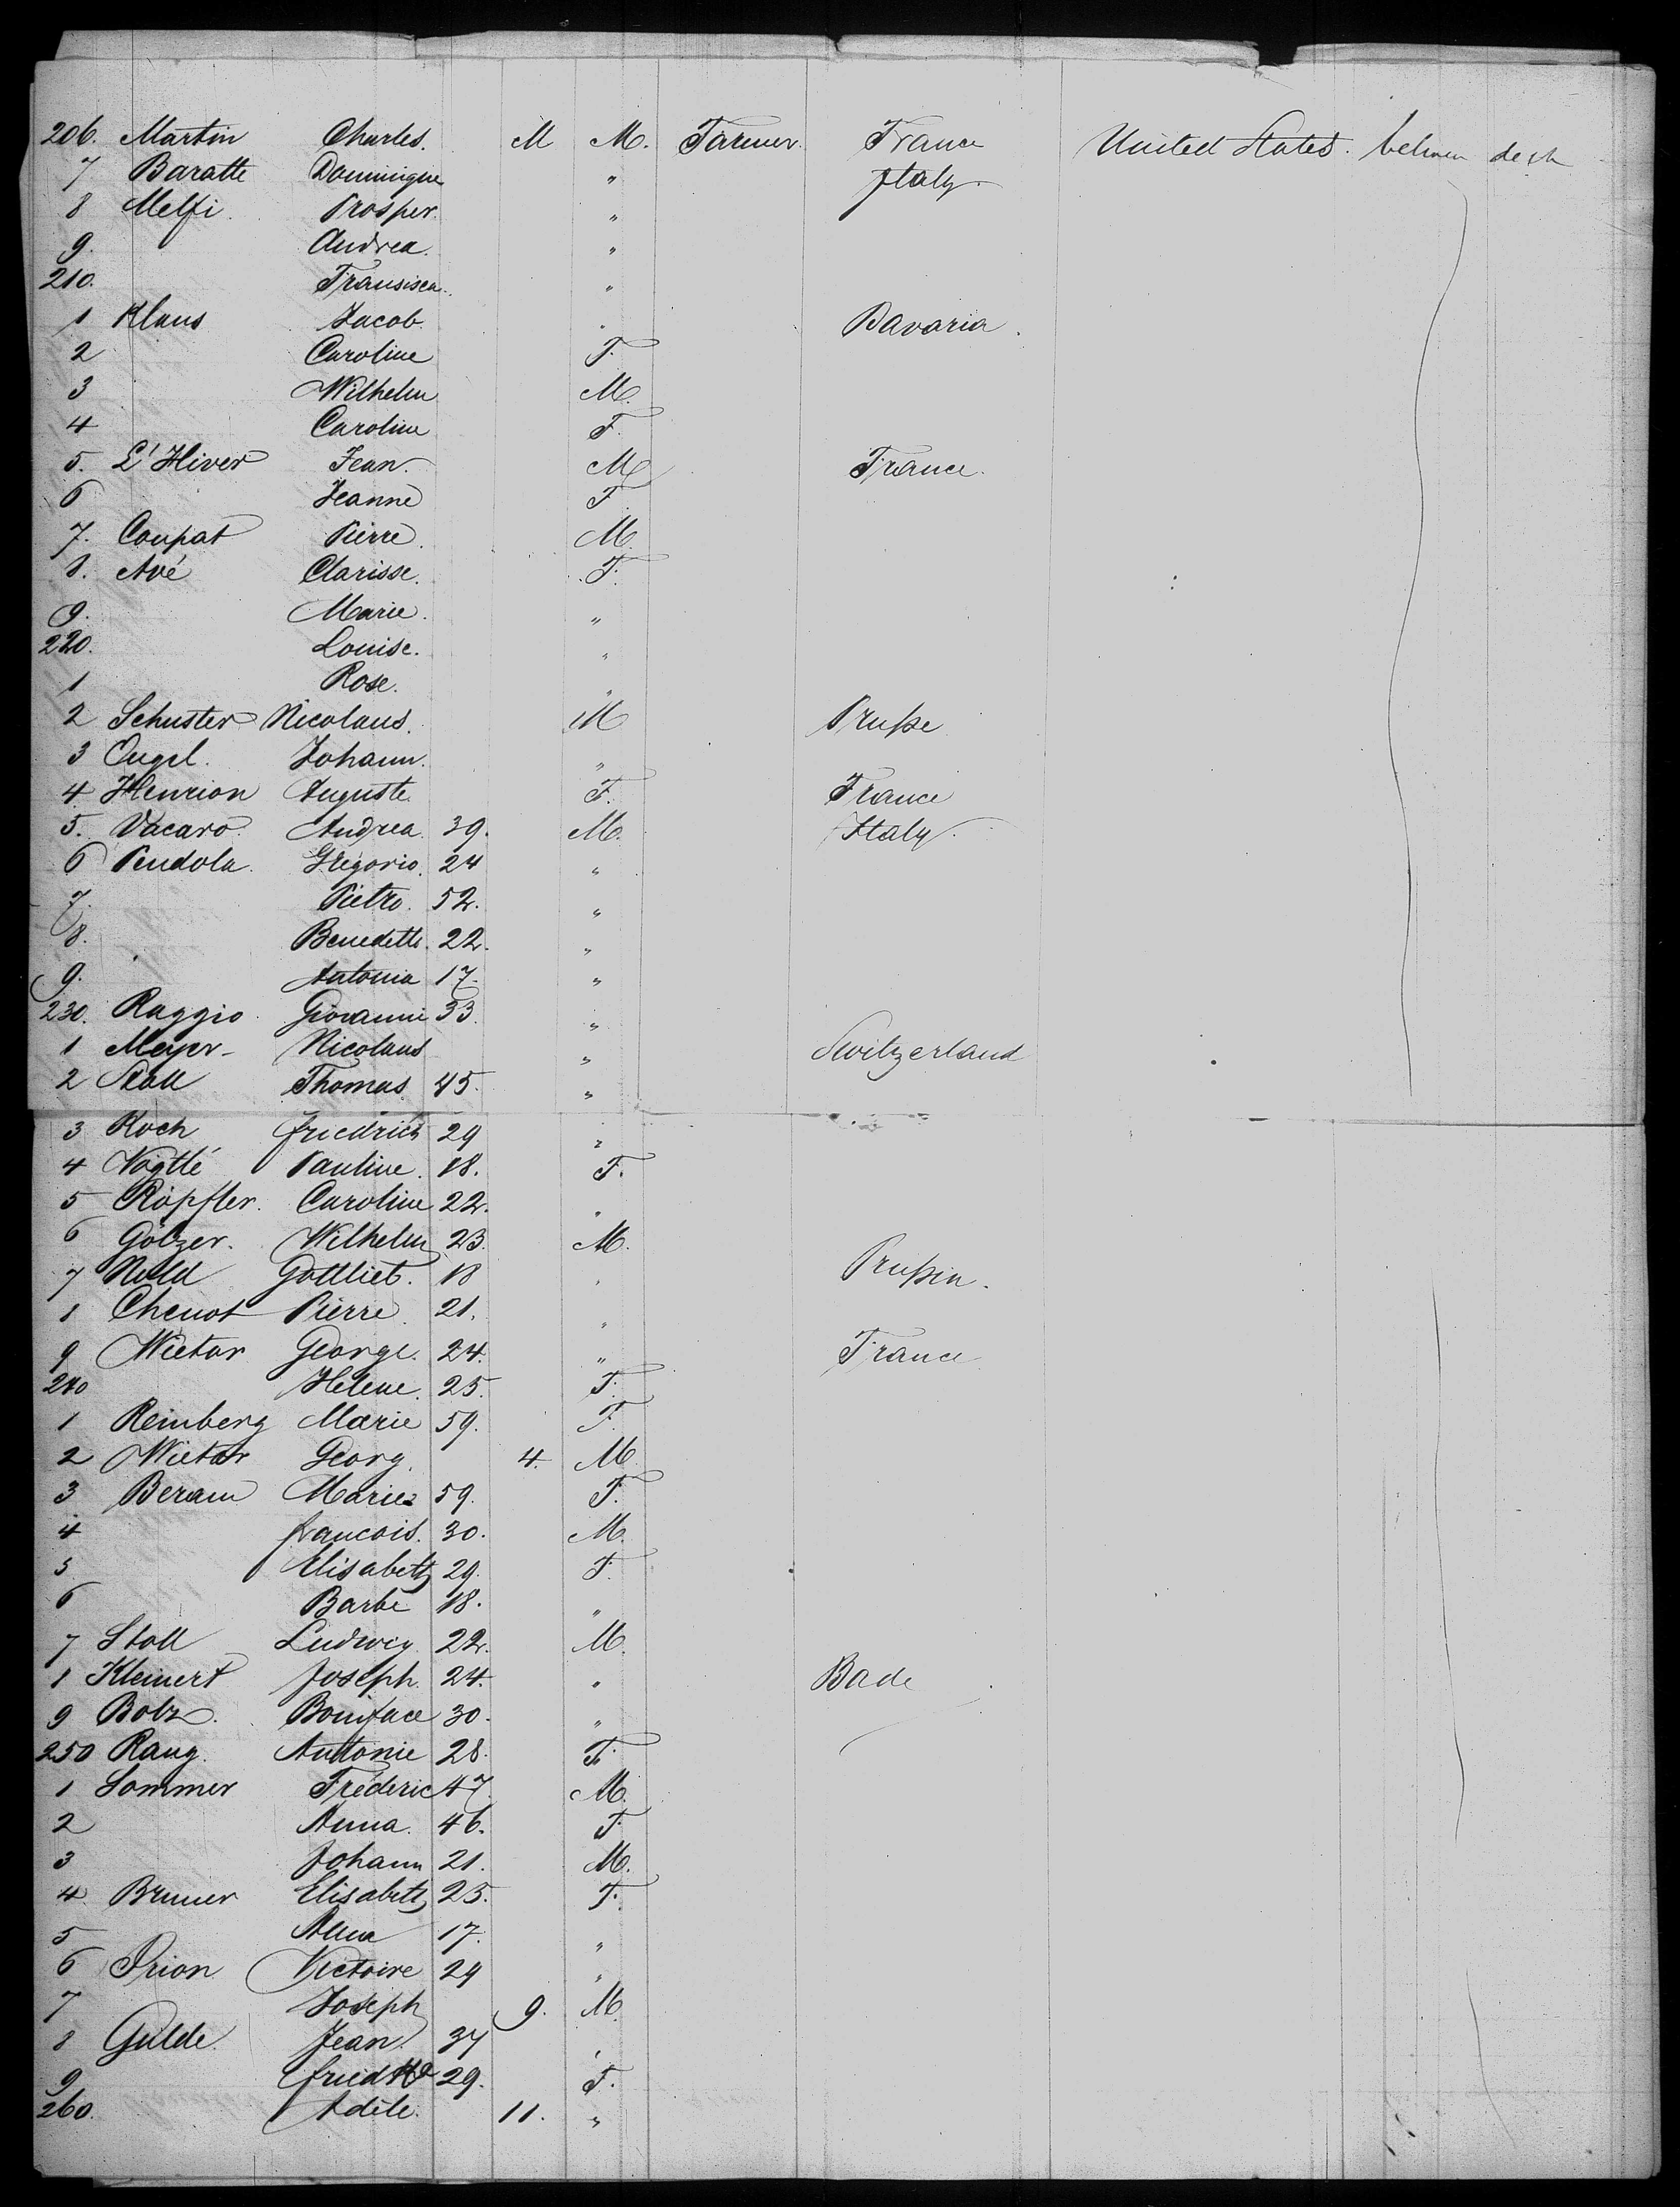 206. Martin Charles. M M. Farmer. France United States. between deck
7 Baratte Dominique " Italy.
8 Melfi. Prosper. "
9. Andrea. "
210. Fransisca. "
1 Klaus Jacob. " Bavaria.
2 Caroline F.
3 Wilhelm M.
4 Caroline F.
5. L'Hiver Jean. M France.
6 Jeanne F
7. Coupat Pierre. M.
8. Avé Clarisse. F.
9. Marie. "
220. Louise. "
1 Rose. "
2 Schuster Nicolaus. M Pruße
3 Engel. Johann. "
4 Henrion Auguste. F. France
5. Vacaro. Andrea. 39. M. Italy.
6 Pendola. Gregorio. 24 "
7. Pietro. 52. "
8. Benedetto. 22. "
9. Antonia 17. "
230. Raggio. Giovanni 33. "
1 Meyer- Nicolaus " Switzerland
2 Thomas 45. "
3 Koch Friedrich 29 "
4 Vögtlé Pauline. 18. F.
5 Röpfler. Caroline 22. "
6 Gölzer. Wilhelm 23. M.
7 Nold Gottlieb. 18 " Prußia.
8 Chenot Pierre. 21. "
9 Wietor George. 24. " France
240 Helene. 25. F.
1 Reinberg Marie 59. F.
2 Wietor Georg. 4. M.
3 Beram Marie 59. F.
4 Francois. 30. M.
5 Elisabeth 29. F.
6 Barbe 18. "
7 Stoll Ludwig 22. M.
8 Kleinert Joseph. 24. " Bade
9 Bolz. Boniface 30. "
250 Rang. Antonie 28. F.
1 Sommer Fréderic 47. M.
2 Anna. 46. F.
3 Johann 21. M.
4 Bruner Elisabeth 25. F.
5 Anna 17. "
6 Prion Victoire 29 "
7 Joseph 9. M.
8 Gulde. Jean. 37 "
9 29. F.
260. Adèle. 11. "